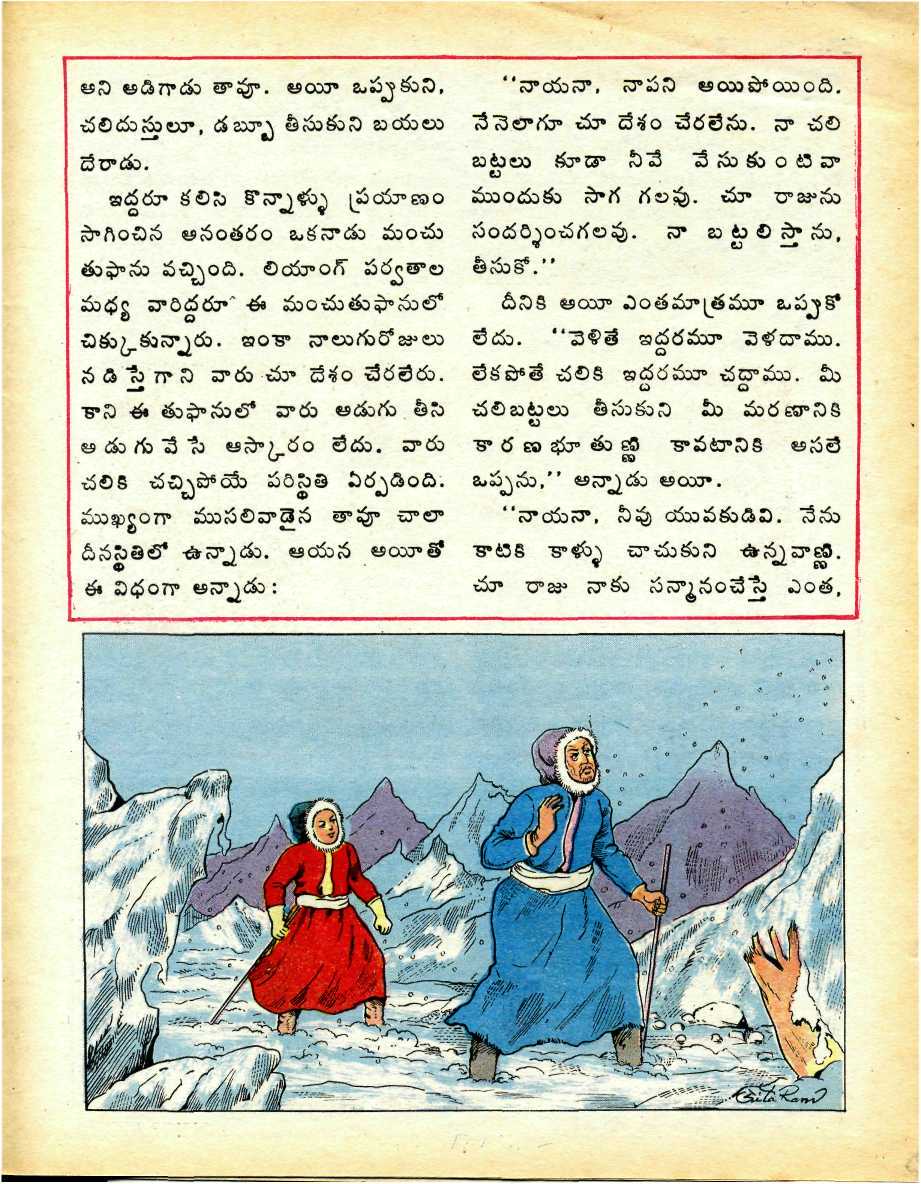 అని అడిగాడు తావూ. అయీ ఒప్పుకుని,
చలిదుస్తులూ, డబ్బూ తీసుకుని బయలు
దేరాడు.
ఇద్దరూ కలిసి కొన్నాళ్ళు ప్రయాణం
సాగించిన అనంతరం ఒకనాడు మంచు
తుఫాను వచ్చింది. లియాంగ్ పర్వతాల
మధ్య వారిద్దరూ ఈ మంచుతుఫానులో
చిక్కుకున్నారు. ఇంకా నాలుగురోజులు
నడిస్తేగాని వారు చూ దేశం చేరలేరు.
కాని ఈ తుఫానులో వారు అడుగు తీసి
అడుగువేసే ఆస్కారం లేదు. వారు
చలికి చచ్చిపోయే పరిస్థితి ఏర్పడింది.
ముఖ్యంగా ముసలివాడైన తావూ చాలా
దీనస్థితిలో ఉన్నాడు. ఆయన అయీతో
ఈ విధంగా అన్నాడు:
‘‘నాయనా, నాపని అయిపోయింది.
నేనెలాగూ చూ దేశం చేరలేను. నా చలి
బట్టలు కూడా నీవే వేసుకుంటివా
ముందుకు సాగ గలవు. చూ రాజును
సందర్శించగలవు. నా బట్టలిస్తాను,
తీసుకో.’’
దీనికి అయీ ఎంతమాత్రమూ ఒప్పుకో
లేదు. ‘‘వెళితే ఇద్దరమూ వెళదాము.
లేకపోతే చలికి ఇద్దరమూ చద్దాము. మీ
చలిబట్టలు తీసుకుని మీ మరణానికి
కారణభూతుణ్ణి కావటానికి అసలే
ఒప్పను,’’ అన్నాడు అయీ.
‘‘నాయనా, నీవు యువకుడివి. నేను
కాటికి కాళ్ళు చాచుకుని ఉన్నవాణ్ణి.
చూ రాజు నాకు సన్మానంచేస్తే ఎంత,
Sita Ram